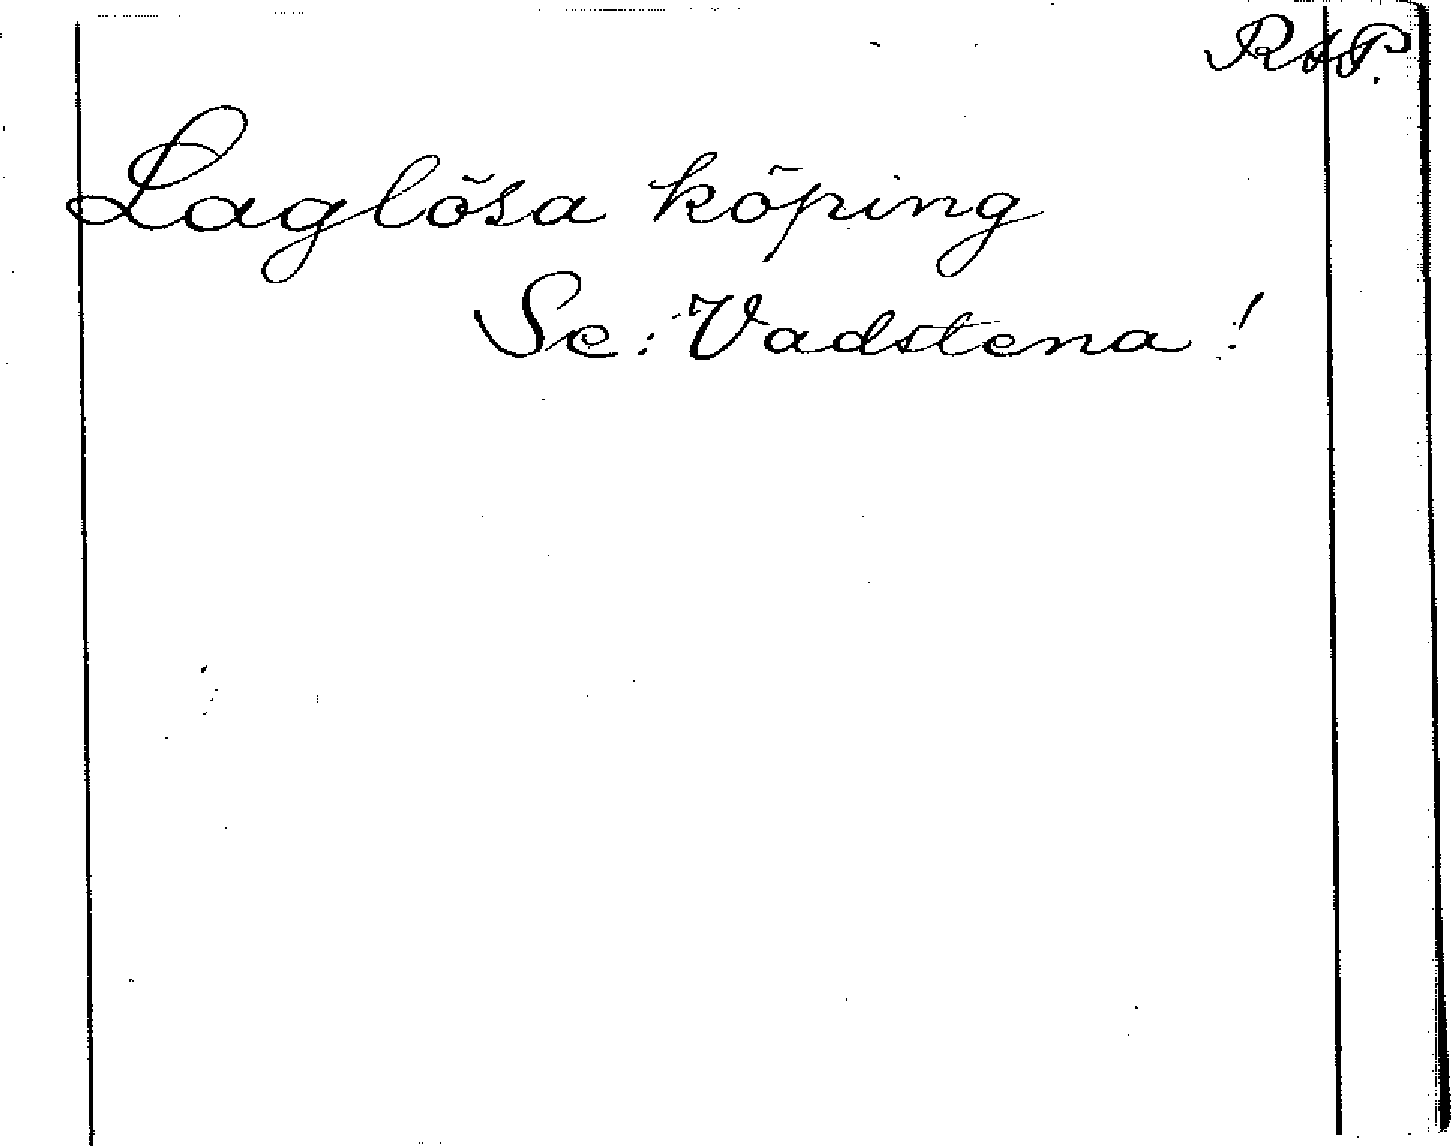 Laglösa köping
Se: Vadstena!